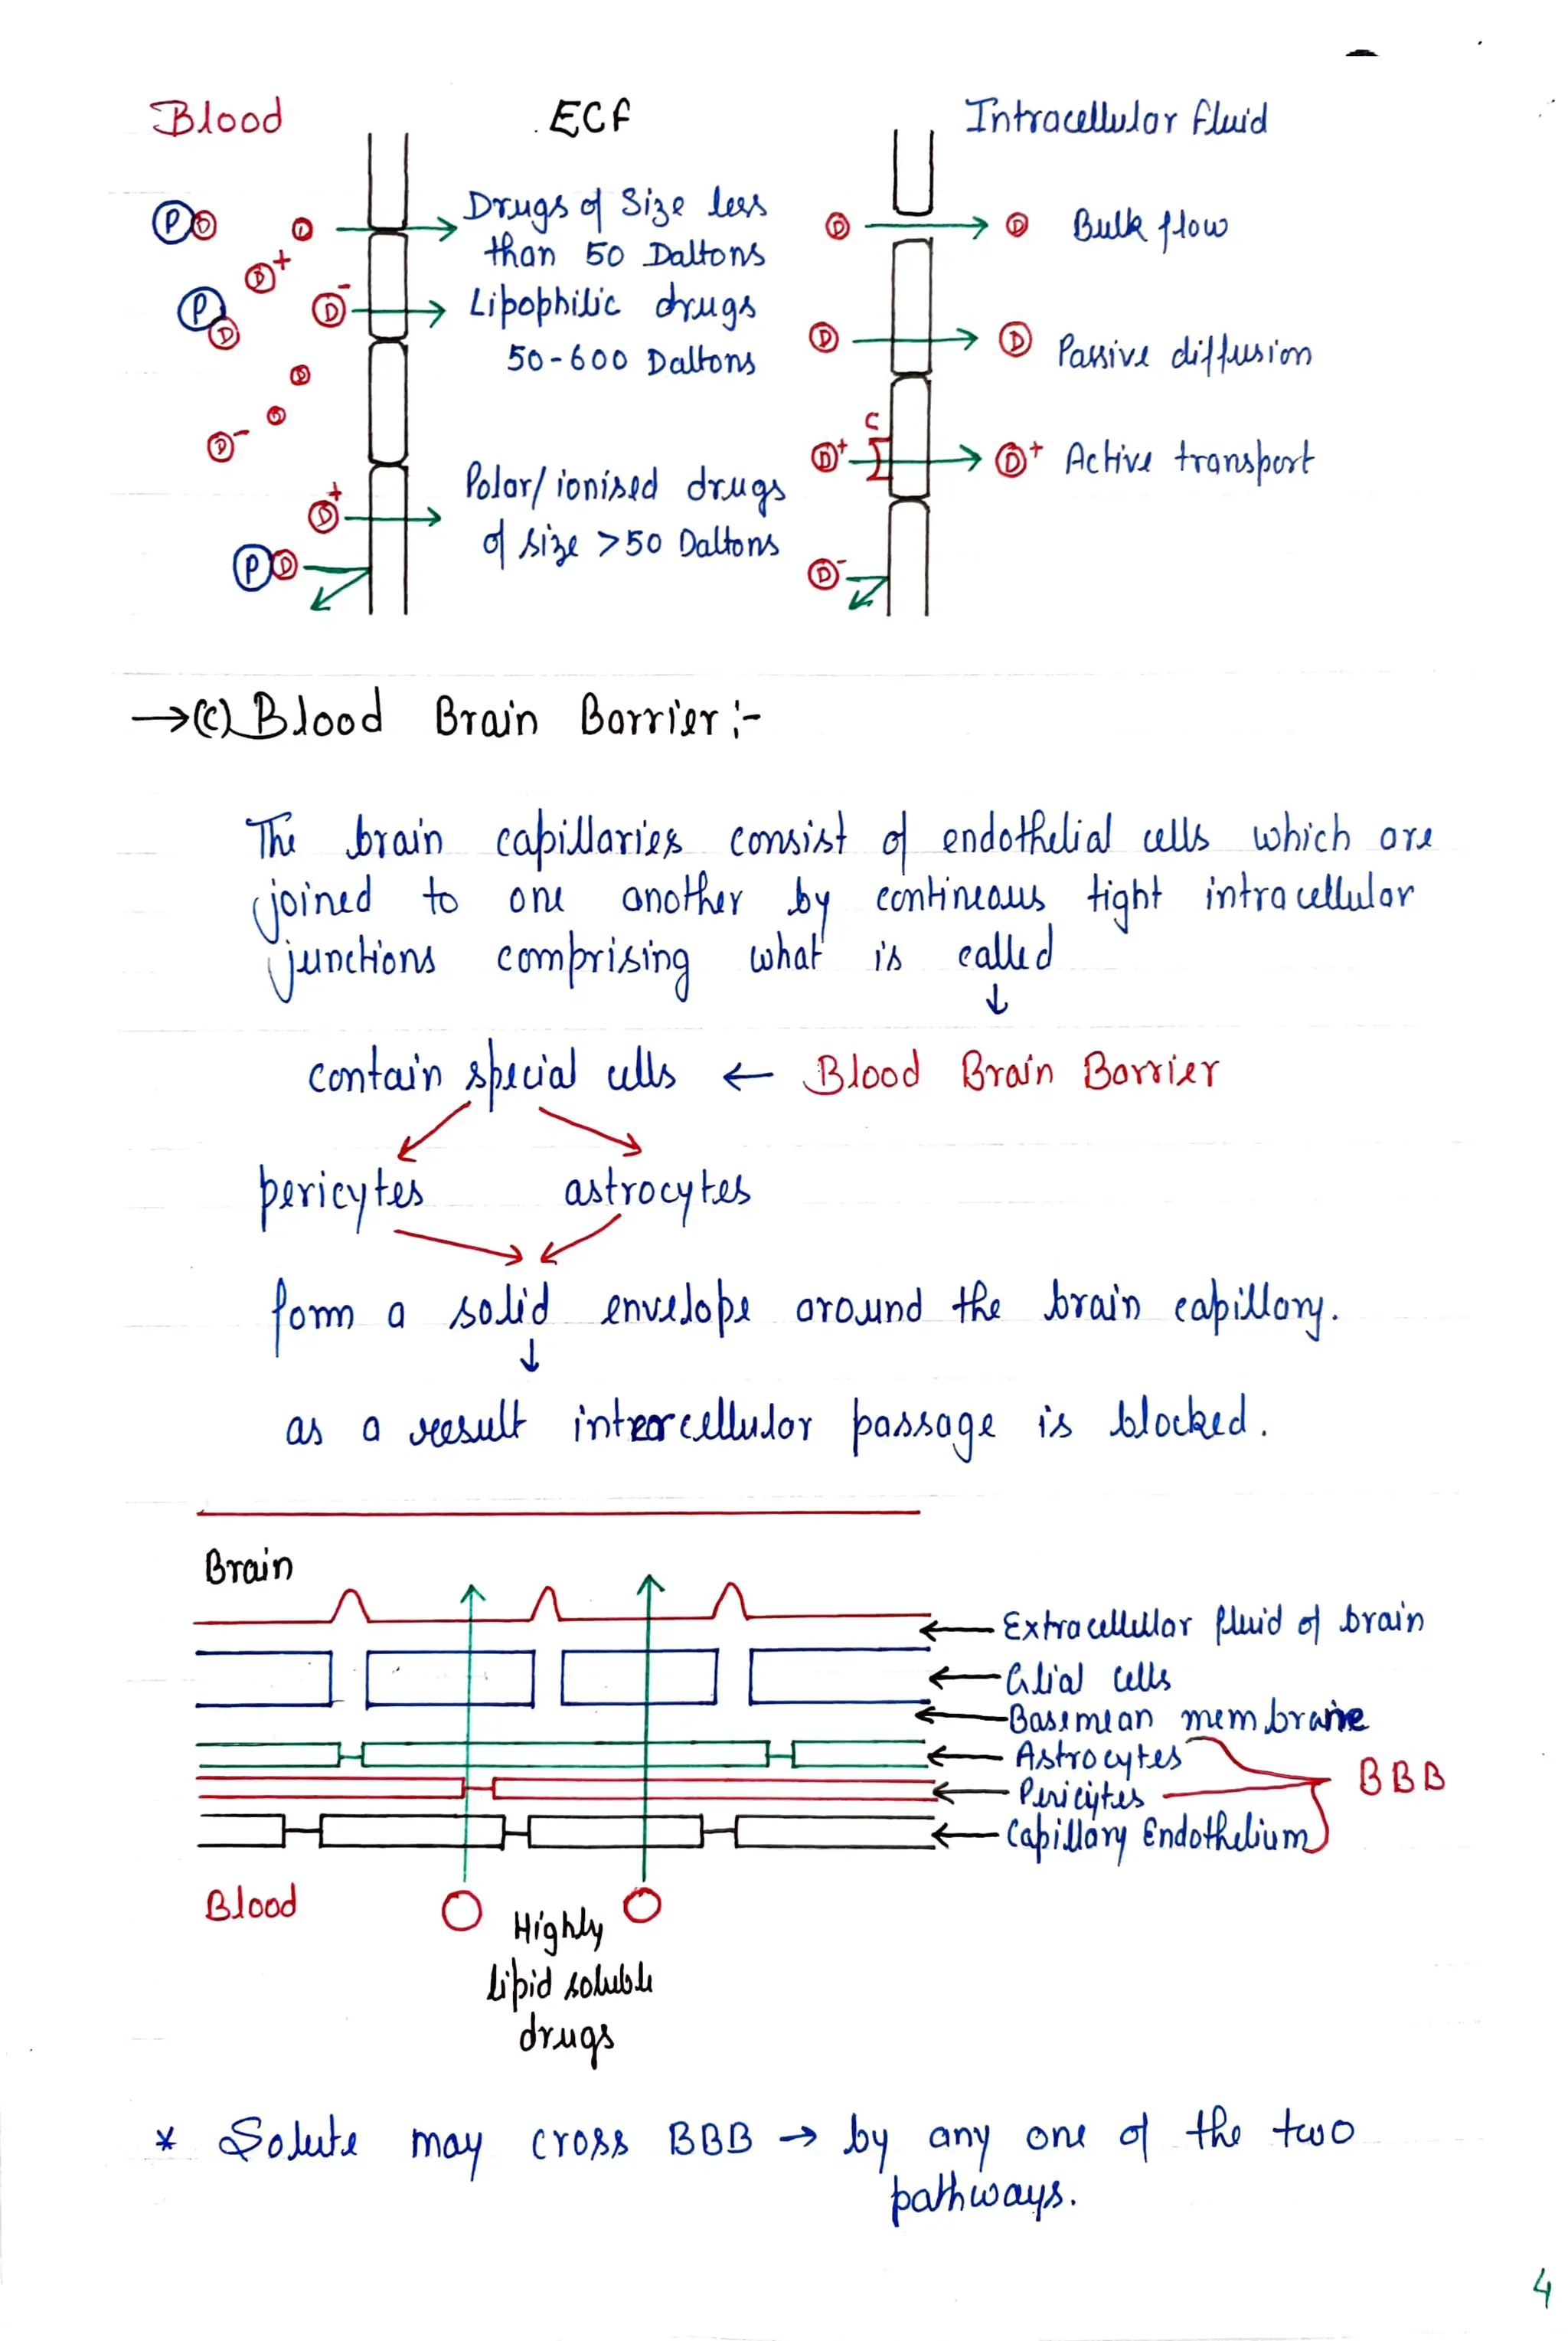 Blood
ECF
Intracellular fluid
P D D Drugs of size less
than 50 Daltons
D D Bulk flow
D+
P D D- Lipophilic drugs
50-600 Daltons
D D Passive diffusion
D
D
D-
C
D+ D+ Active transport
D+ Polar/ionised drugs
of size >50 Daltons
P D
D-
→(C) Blood Brain Barrier:-
The brain capillaries consist of endothelial cells which are
joined to one another by contineous tight intracellular
junctions comprising what is called
↓
contain special cells ← Blood Brain Barrier
pericytes astrocytes
form a solid envelope around the brain capillary.
↓
as a result intercellular passage is blocked.
Brain
Extracellullar fluid of brain
Glial cells
Basemean membrane
Astrocytes
Pericytes
BBB
Capillary Endothelium
Blood
Highly
lipid soluble
drugs
* Solute may cross BBB → by any one of the two
pathways.
4